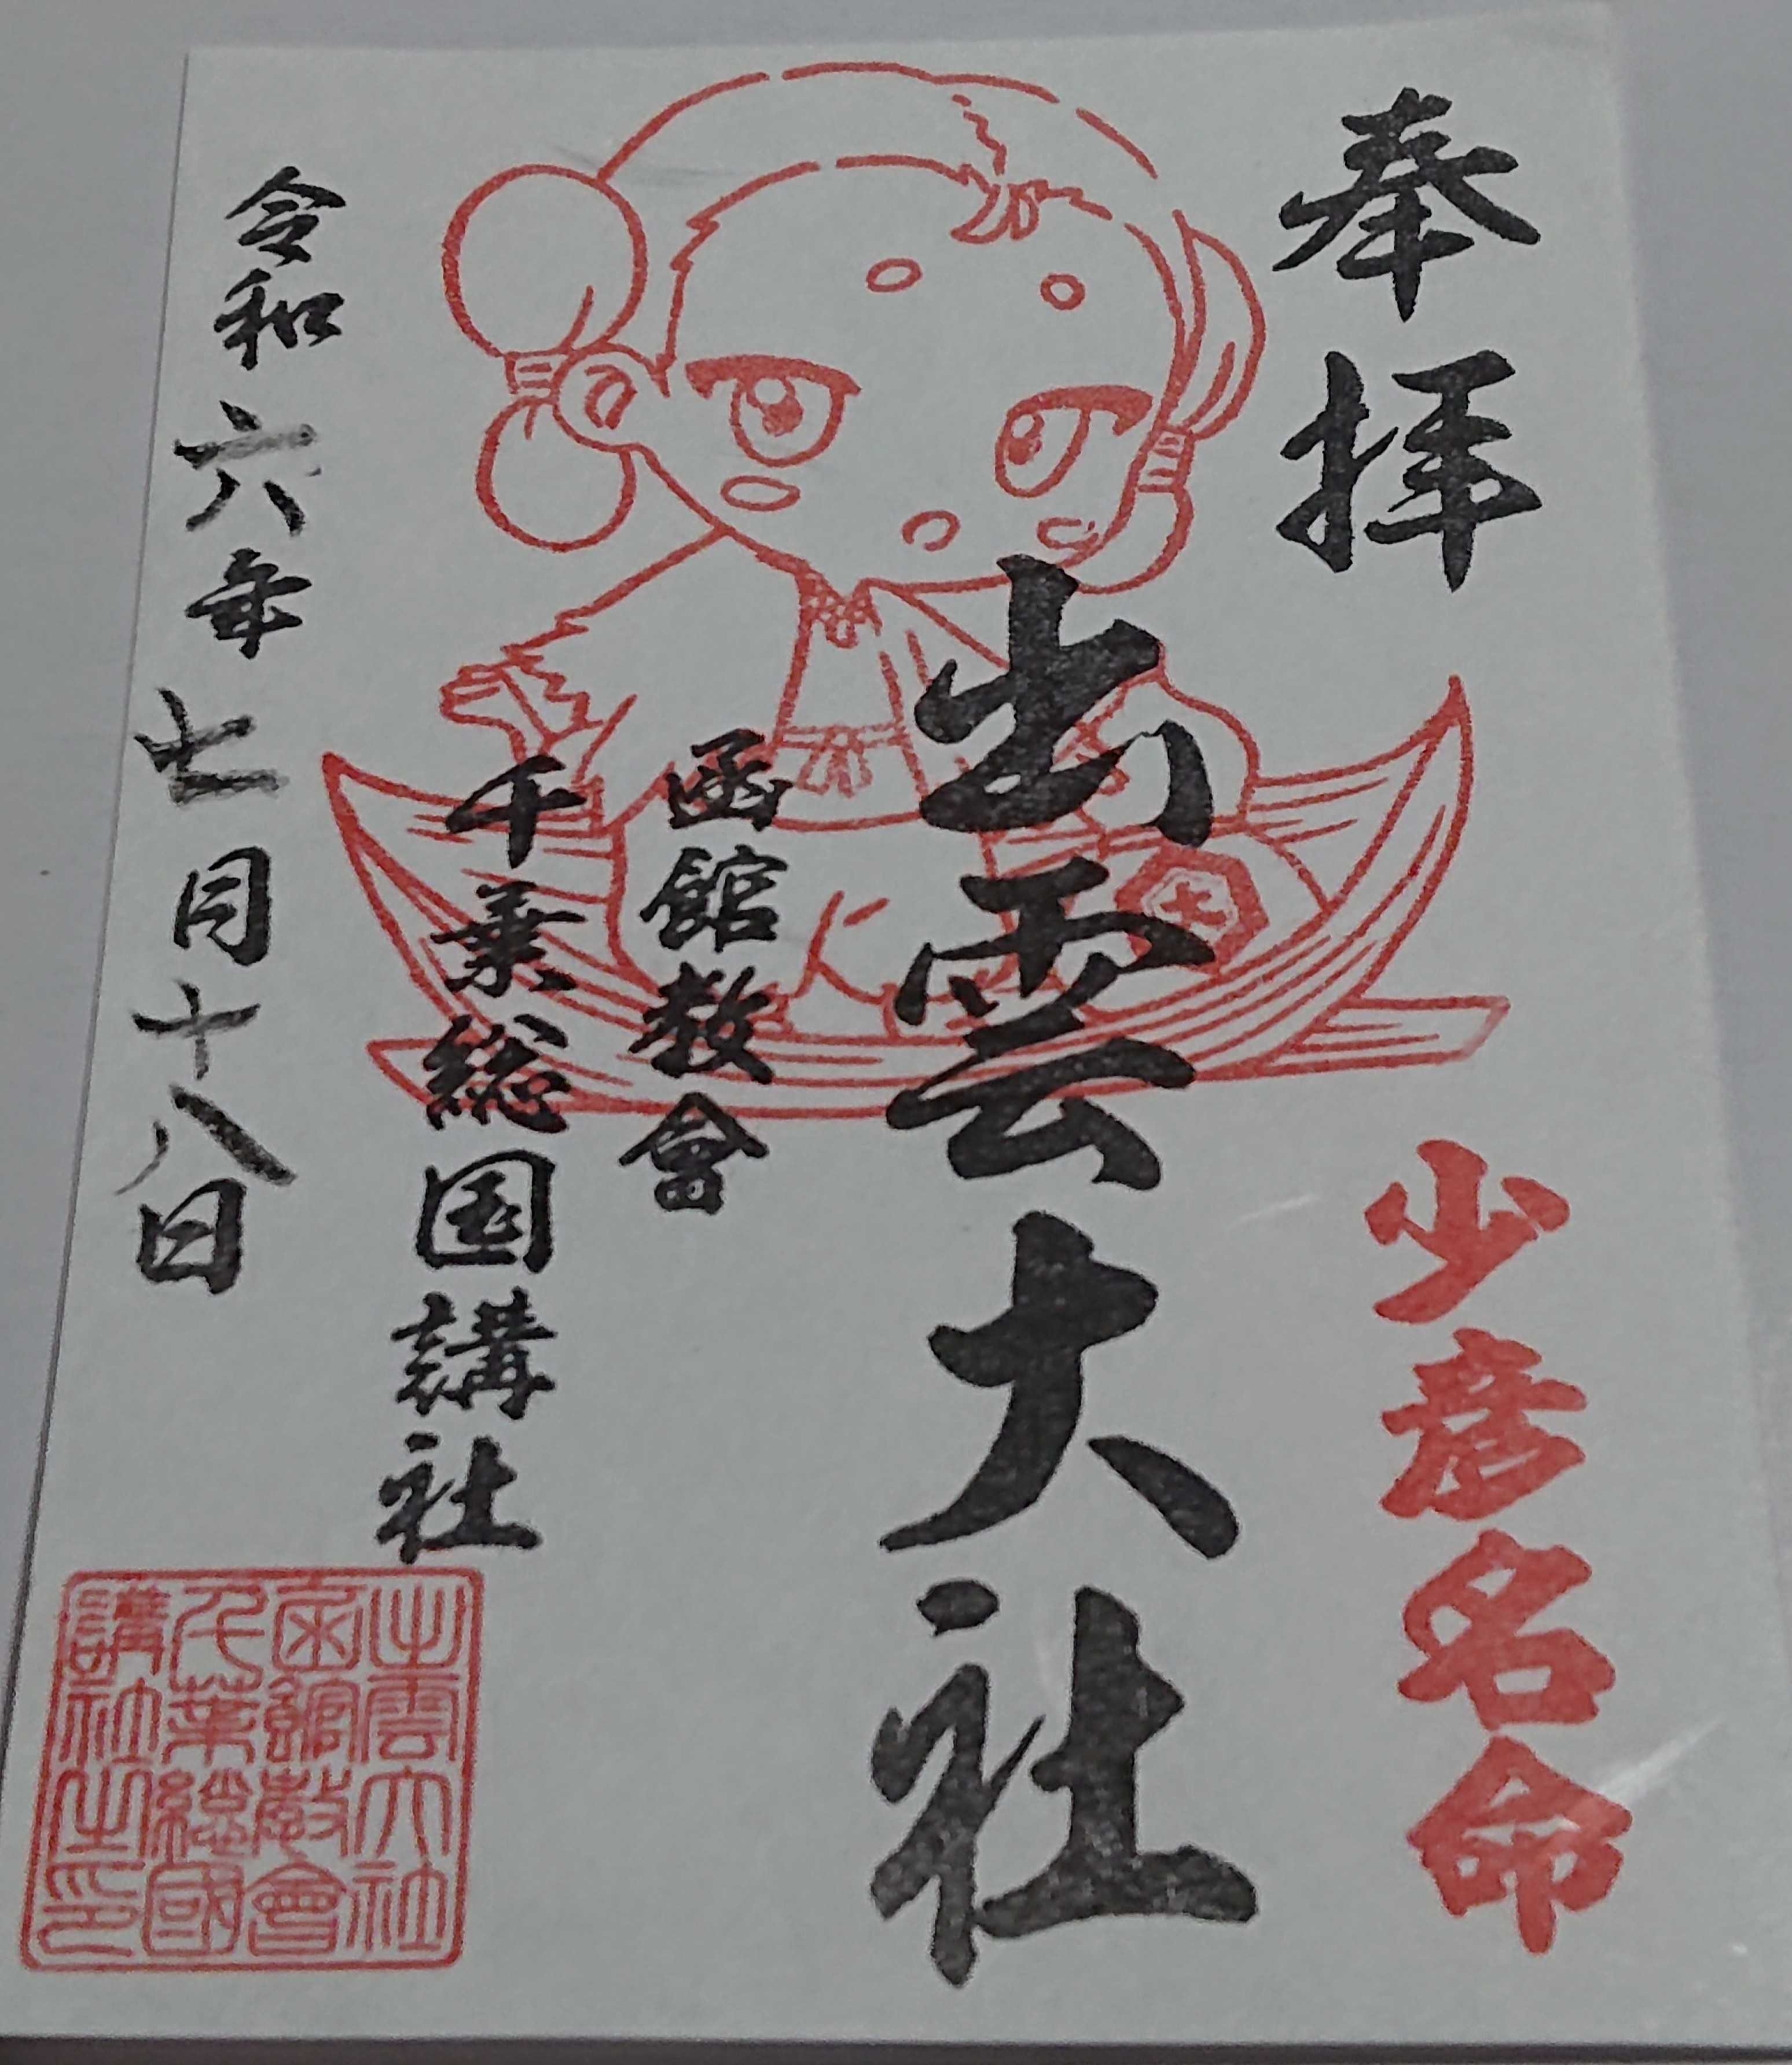 奉拝
少彦名命
出雲大社
函館教會
千葉総国講社
令和六年七月十八日
出雲大社
函館教會
千葉総國
講社之印